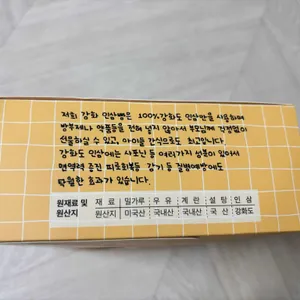 저희 강화 인삼빵은 100%강화도 인삼만을 사용하며
방부제나 약품등을 전혀 넣지 않아서 부모님께 걱정없이
선물하실 수 있고, 아이들 간식으로도 최고입니다.
강화도 인삼에는 사포닌 등 여러가지 성분이 있어서
면역력 증진 피로회복등 감기 등 질병예방에도
탁월한 효과가 있습니다.
원재료 및 원산지
재 료 밀가루 우 유 계 란 설 탕 인 삼
원산지 미국산 국내산 국내산 국 산 강화도